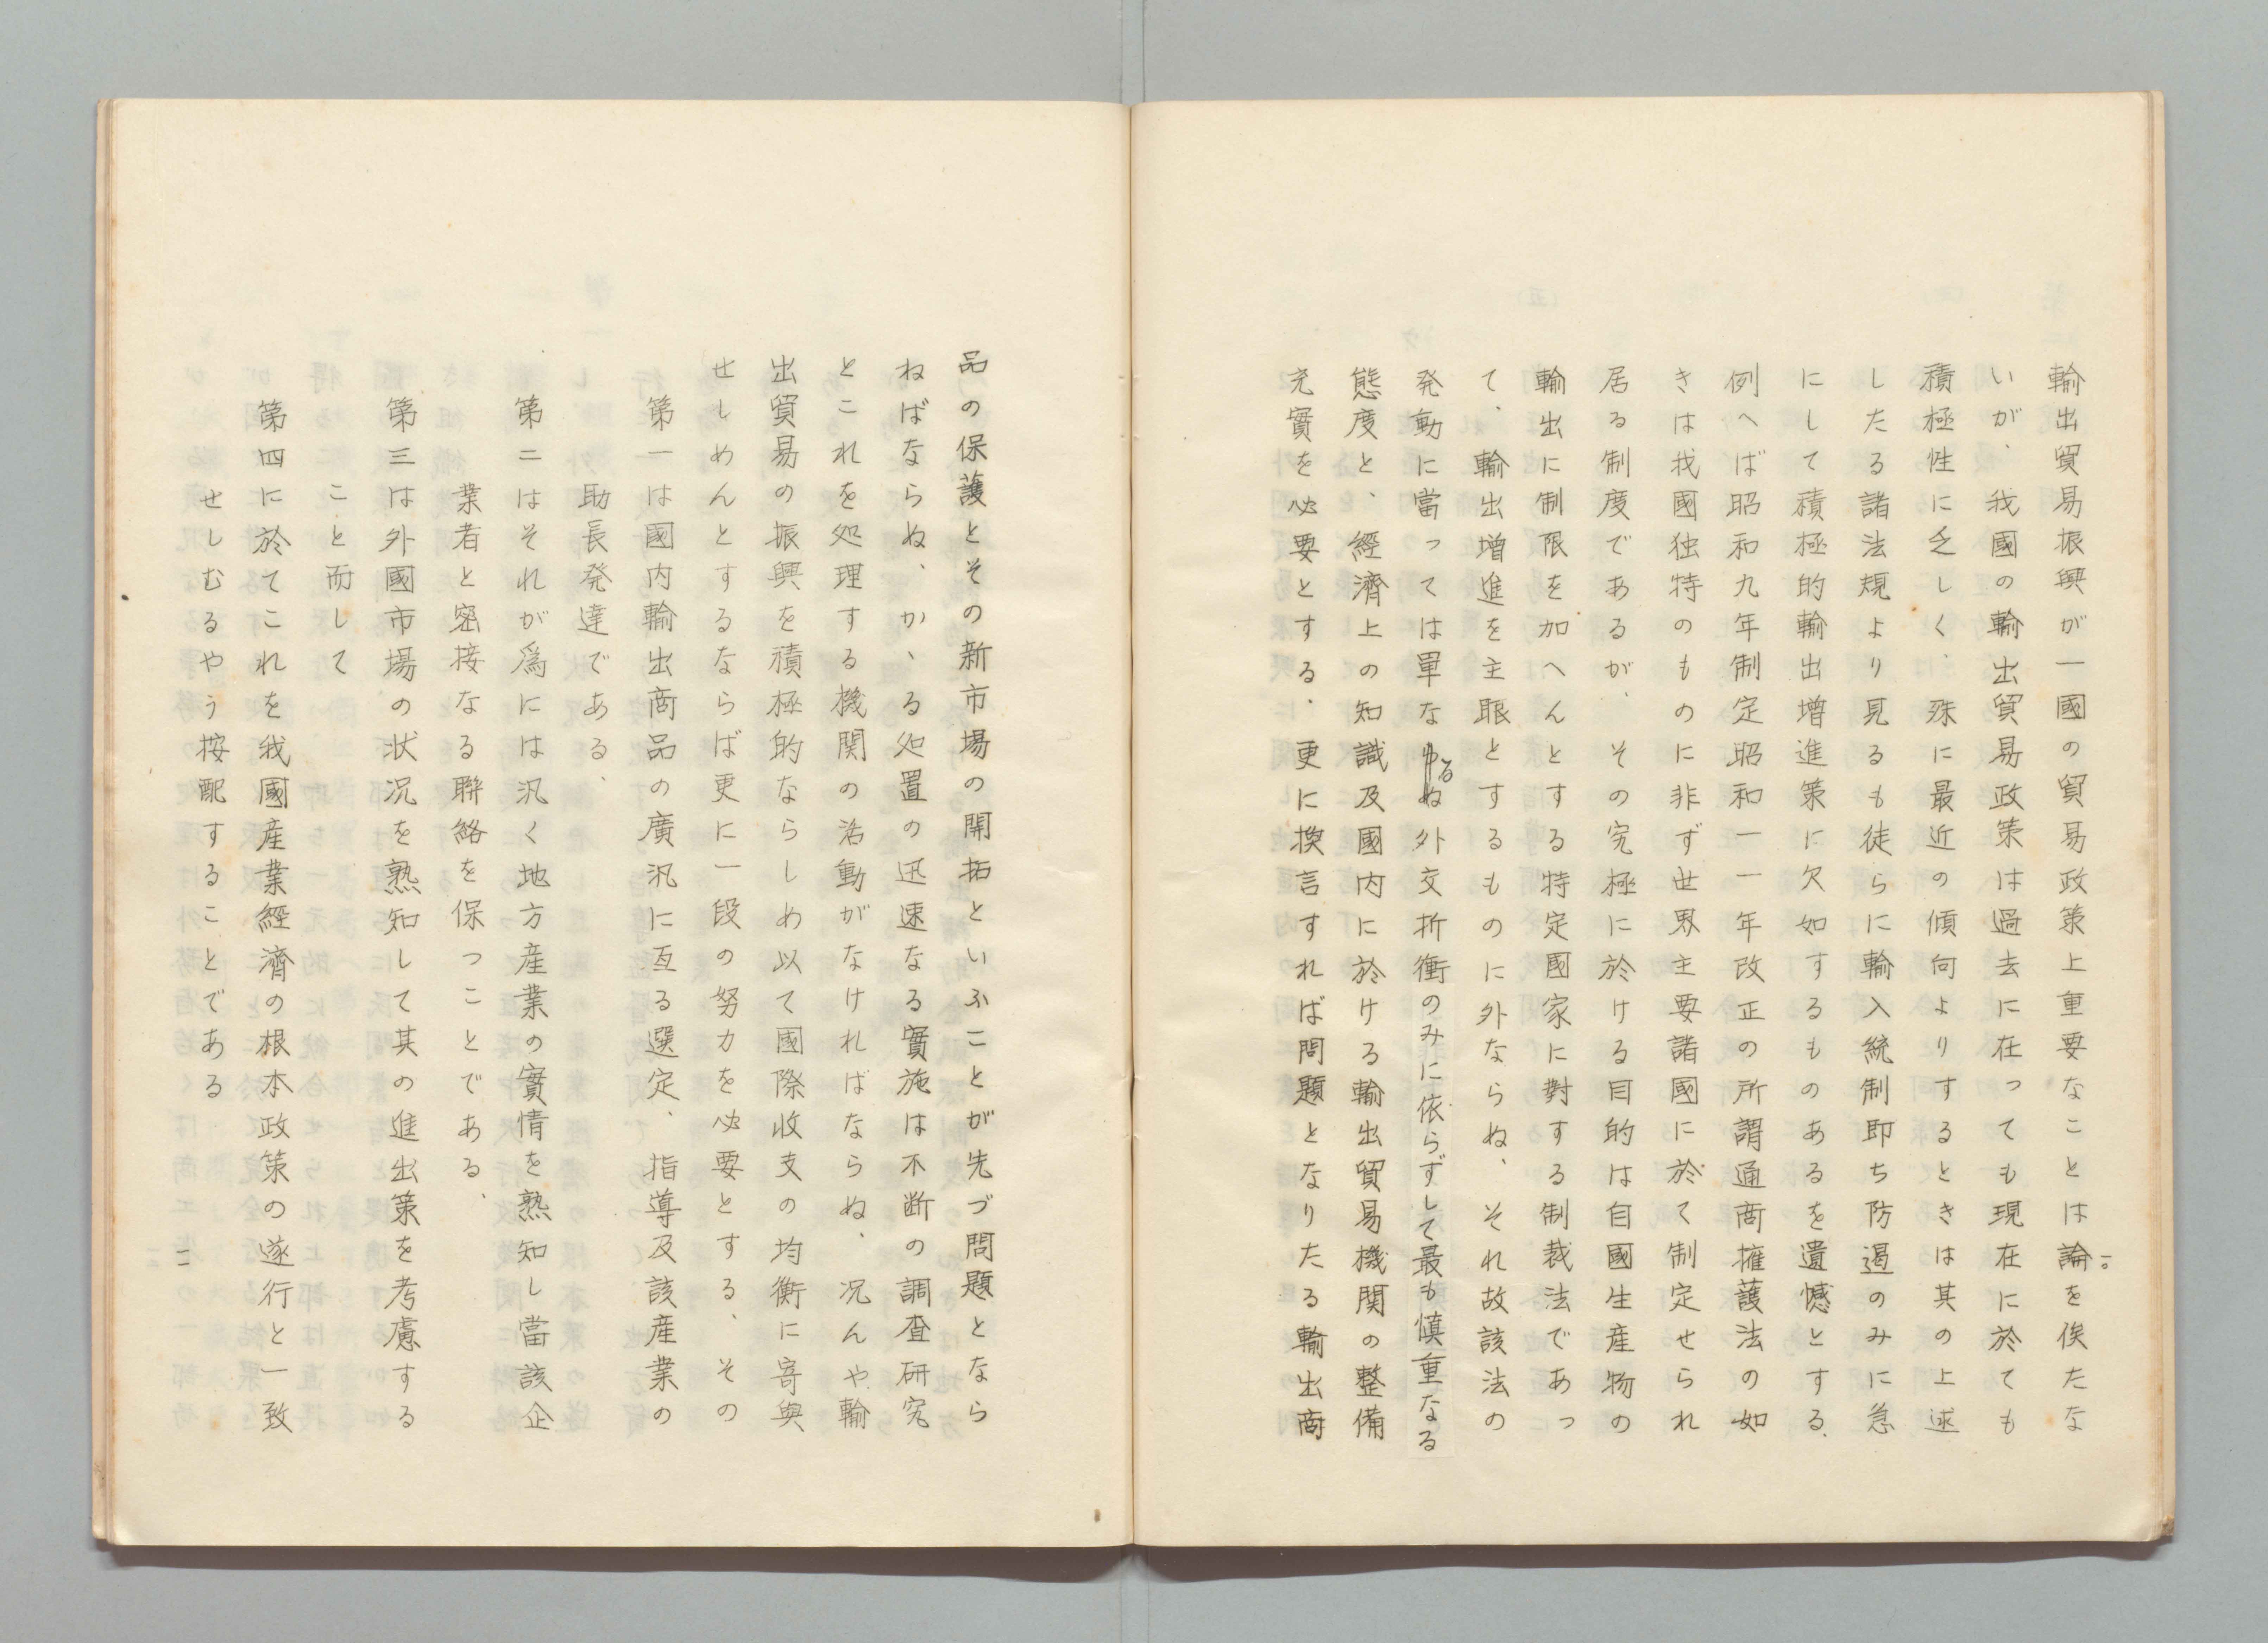 輸出貿易振興が一國の貿易政策上重要なことは論を俟たな
いが、我國の輸出貿易政策は過去に在っても現在に於ても
積極性に乏しく、殊に最近の傾向よりするときは其の上述
したる諸法規より見るも徒らに輸入統制即ち防遏のみに急
にして積極的輸出増進策に欠如するものあるを遺憾とする、
例へば昭和九年制定昭和一一年改正の所謂通商擁護法の如
きは我國独特のものに非ず世界主要諸國に於て制定せられ
居る制度であるが、その究極に於ける目的は自國生産物の
輸出に制限を加へんとする特定國家に對する制裁法であっ
て、輸出増進を主眼とするものに外ならぬ、それ故該法の
発動に當っては單なる外交折衝のみに依らずして最も慎重なる
態度と、經濟上の知識及國内に於ける輸出貿易機関の整備
充實を必要とする、更に換言すれば問題となりたる輸出商
品の保護とその新市場の開拓といふことが先づ問題となら
ねばならぬ、かゝる処置の迅速なる實施は不断の調査研究
とこれを処理する機関の活動がなければならぬ、況んや輸
出貿易の振興を積極的ならしめ以て國際收支の均衡に寄與
せしめんとするならば更に一段の努力を必要とする、その
第一は國内輸出商品の廣汎に亙る選定、指導及該産業の
助長発達である、
第二はそれが爲には汎く地方産業の實情を熟知し當該企
業者と密接なる聯絡を保つことである、
第三は外國市場の状況を熟知して其の進出策を考慮する
こと而して
第四に於てこれを我國産業經濟の根本政策の遂行と一致
せしむるやう按配することである